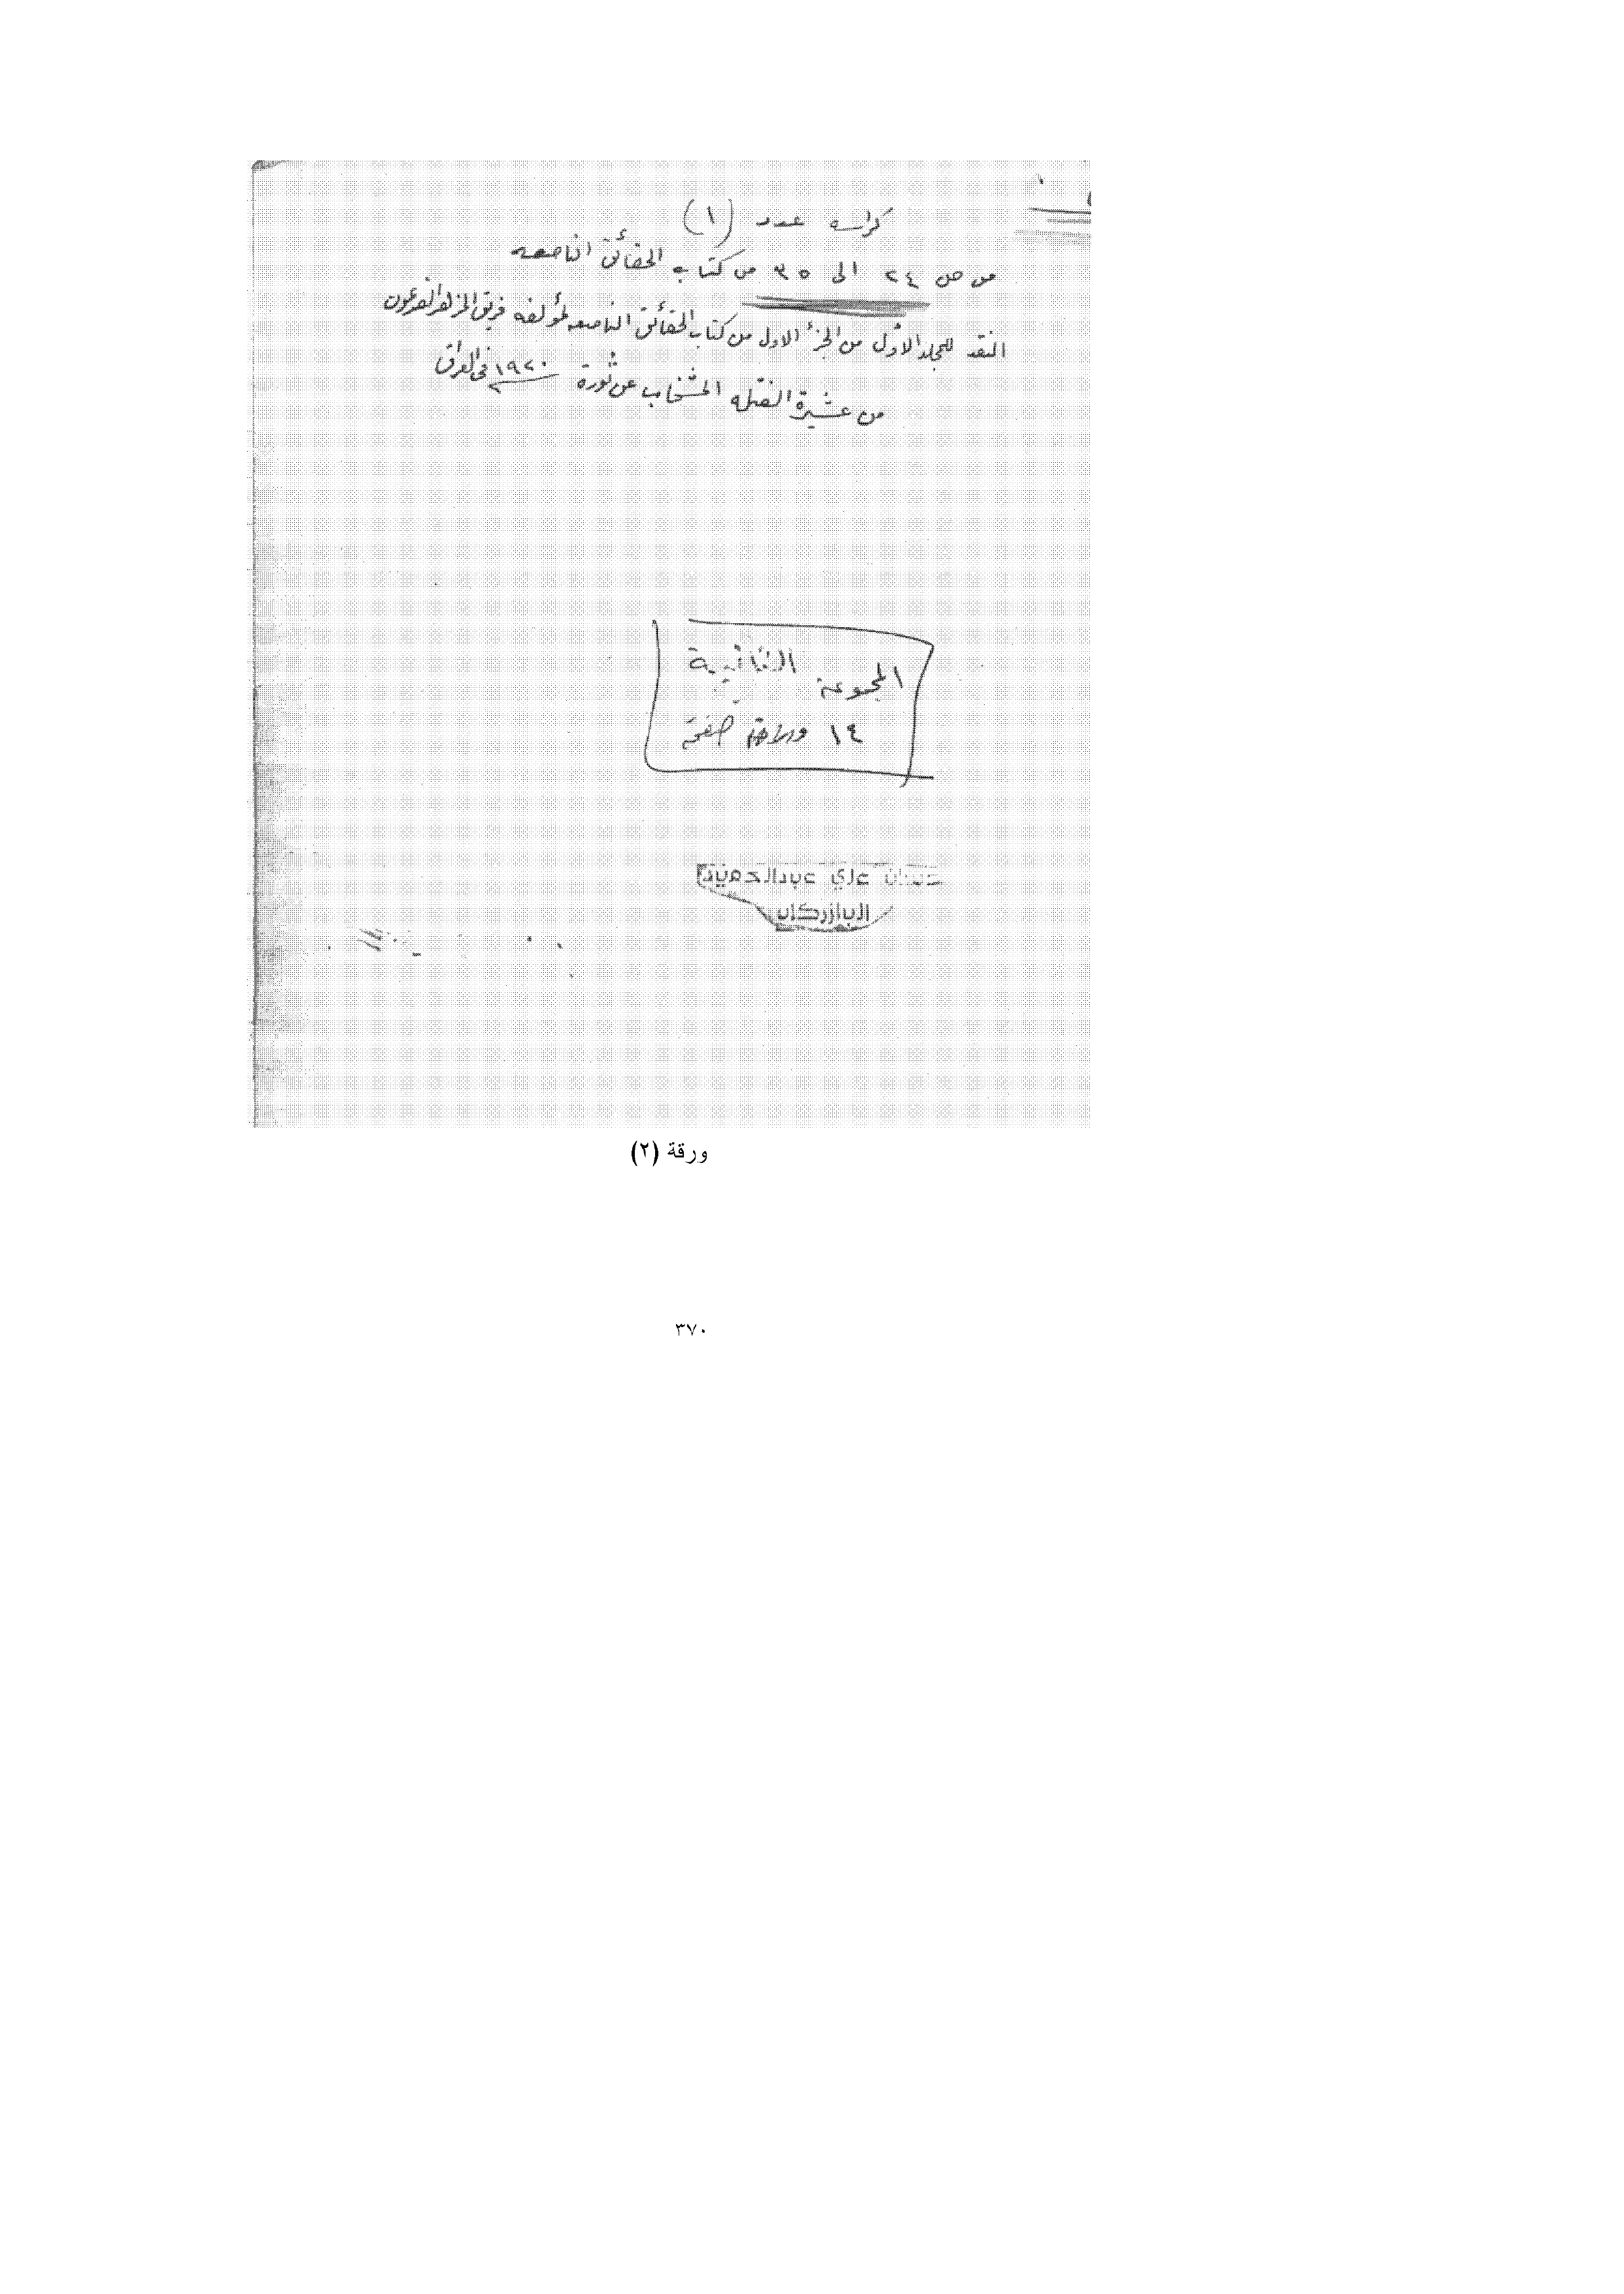 كراسه عدد (١)
من ص ٢٤ الى ٣٥ من كتاب الحقائق الناصعه
النقد للمجلد الاول من الجزأ الاول من كتاب الحقائق الناصعه لمؤلفه فريق المزهر الفرعون
من عشيرة الفتله المشخاب عن ثورة ١٩٢٠ في العراق
المجموعة الثانية
١٤ صفحة
حسان علي عبدالحميد
البازركان
ورقة (٢)
٣٧٠